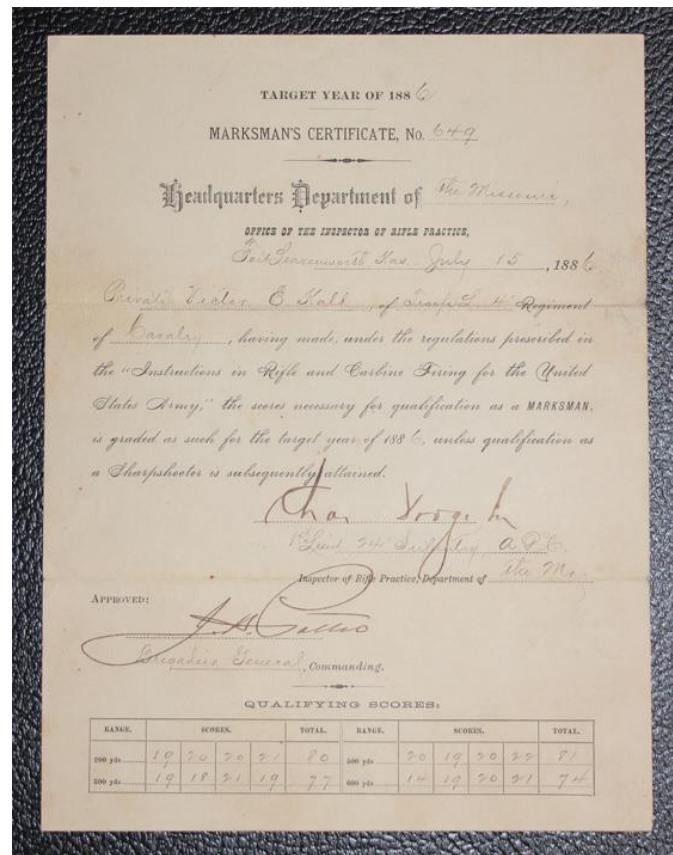 TARGET YEAR OF 1886
MARKSMAN'S CERTIFICATE, No. 649
Headquarters Department of The Missouri,
OFFICE OF THE INSPECTOR OF RIFLE PRACTICE,
Fort Leavenworth Kas. July 15, 1886
Private Victor E. , of Troop L. 4" Regiment
of Cavalry, having made, under the regulations prescribed in
the "Instructions in Rifle and Carbine Firing for the United
States Army," the scores necessary for qualification as a MARKSMAN,
is graded as such for the target year of 1886, unless qualification as
a Sharpshooter is subsequently attained.
Chas
1st Lieut 24" Infantry
Inspector of Rifle Practice, Department of The Mo.
APPROVED:
Brigadier General, Commanding.
QUALIFYING SCORES:
RANGE. SCORES. TOTAL. RANGE. SCORES. TOTAL.
200 yds 19 20 20 21 80 500 yds 20 19 20 22 81
300 yds 19 18 21 19 77 600 yds 14 19 20 21 74